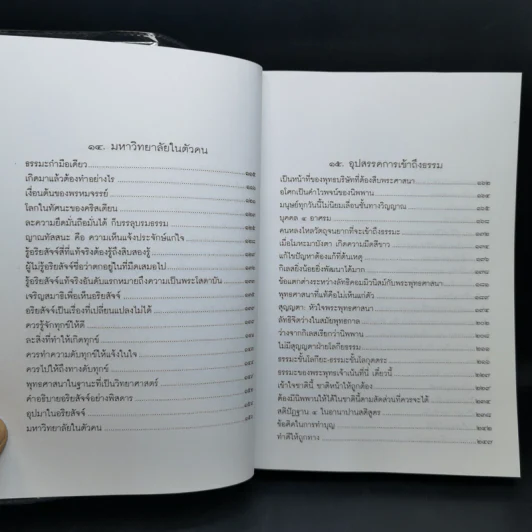 ๑๔. มหาวิทยาลัยในตัวคน
ธรรมะกำมือเดียว
เกิดมาแล้วต้องทำอย่างไร
เงื่อนต้นของพรหมจรรย์
โลกในทัศนะของคริสเตียน
ละความยึดมั่นถือมั่นได้ ก็บรรลุบรมธรรม
ญาณทัสสนะ คือ ความเห็นแจ้งประจักษ์แก่ใจ
รู้อริยสัจจ์สี่ที่แท้จริงต้องรู้ถึงสิบสองรู้
ผู้ไม่รู้อริยสัจจ์ชื่อว่าตกอยู่ในที่มืดเสมอไป
รู้อริยสัจจ์แท้จริงอันดับแรกหมายถึงความเป็นพระโสดาบัน
เจริญสมาธิเพื่อเห็นอริยสัจจ์
อริยสัจจ์เป็นเรื่องที่เปลี่ยนแปลงไม่ได้
ควรรู้จักทุกข์ให้ดี
ละสิ่งที่ทำให้เกิดทุกข์
ควรทำความดับทุกข์ให้แจ้งในใจ
ควรไปให้ถึงทางดับทุกข์
พุทธศาสนาในฐานะที่เป็นวิทยาศาสตร์
คำอธิบายอริยสัจจ์อย่างพิสดาร
อุปมาในอริยสัจจ์
มหาวิทยาลัยในตัวคน
๑๕. อุปสรรคการเข้าถึงธรรม
เป็นหน้าที่ของพุทธบริษัทที่ต้องสืบพระศาสนา
อโศกเป็นคำไวพจน์ของนิพพาน
มนุษย์ทุกวันนี้ไม่นิยมเลื่อนชั้นทางวิญญาณ
บุคคล ๔ อาศรม
คนหลงใหลวัตถุจนยากที่จะเข้าถึงธรรมะ
เมื่อโมหะมาบังตา เกิดความมืดสีขาว
แก้ไขปัญหาต้องแก้ที่ต้นเหตุ
กิเลสยิ่งน้อยยิ่งพัฒนาได้มาก
ข้อแตกต่างระหว่างลัทธิคอมมิวนิสม์กับพระพุทธศาสนา
พุทธศาสนาที่แท้คือไม่เห็นแก่ตัว
สุญญตา: หัวใจพระพุทธศาสนา
ลัทธิจิตว่างในสมัยพุทธกาล
ว่างจากกิเลสเรียกว่านิพพาน
ไม่มีสุญญตาฝ่ายโลกียธรรม
ธรรมะชั้นโลกียะ-ธรรมะชั้นโลกุตตระ
ธรรมะของพระพุทธเจ้าเน้นที่นี่ เดี๋ยวนี้
เข้าใจชาตินี้ ชาติหน้าให้ถูกต้อง
ต้องมีนิพพานให้ได้ในชาตินี้ตามสัดส่วนที่ควรจะได้
สติปัฏฐาน ๔ ในอานาปานสติสูตร
ข้อคิดในการทำบุญ
ทำดีให้ถูกทาง